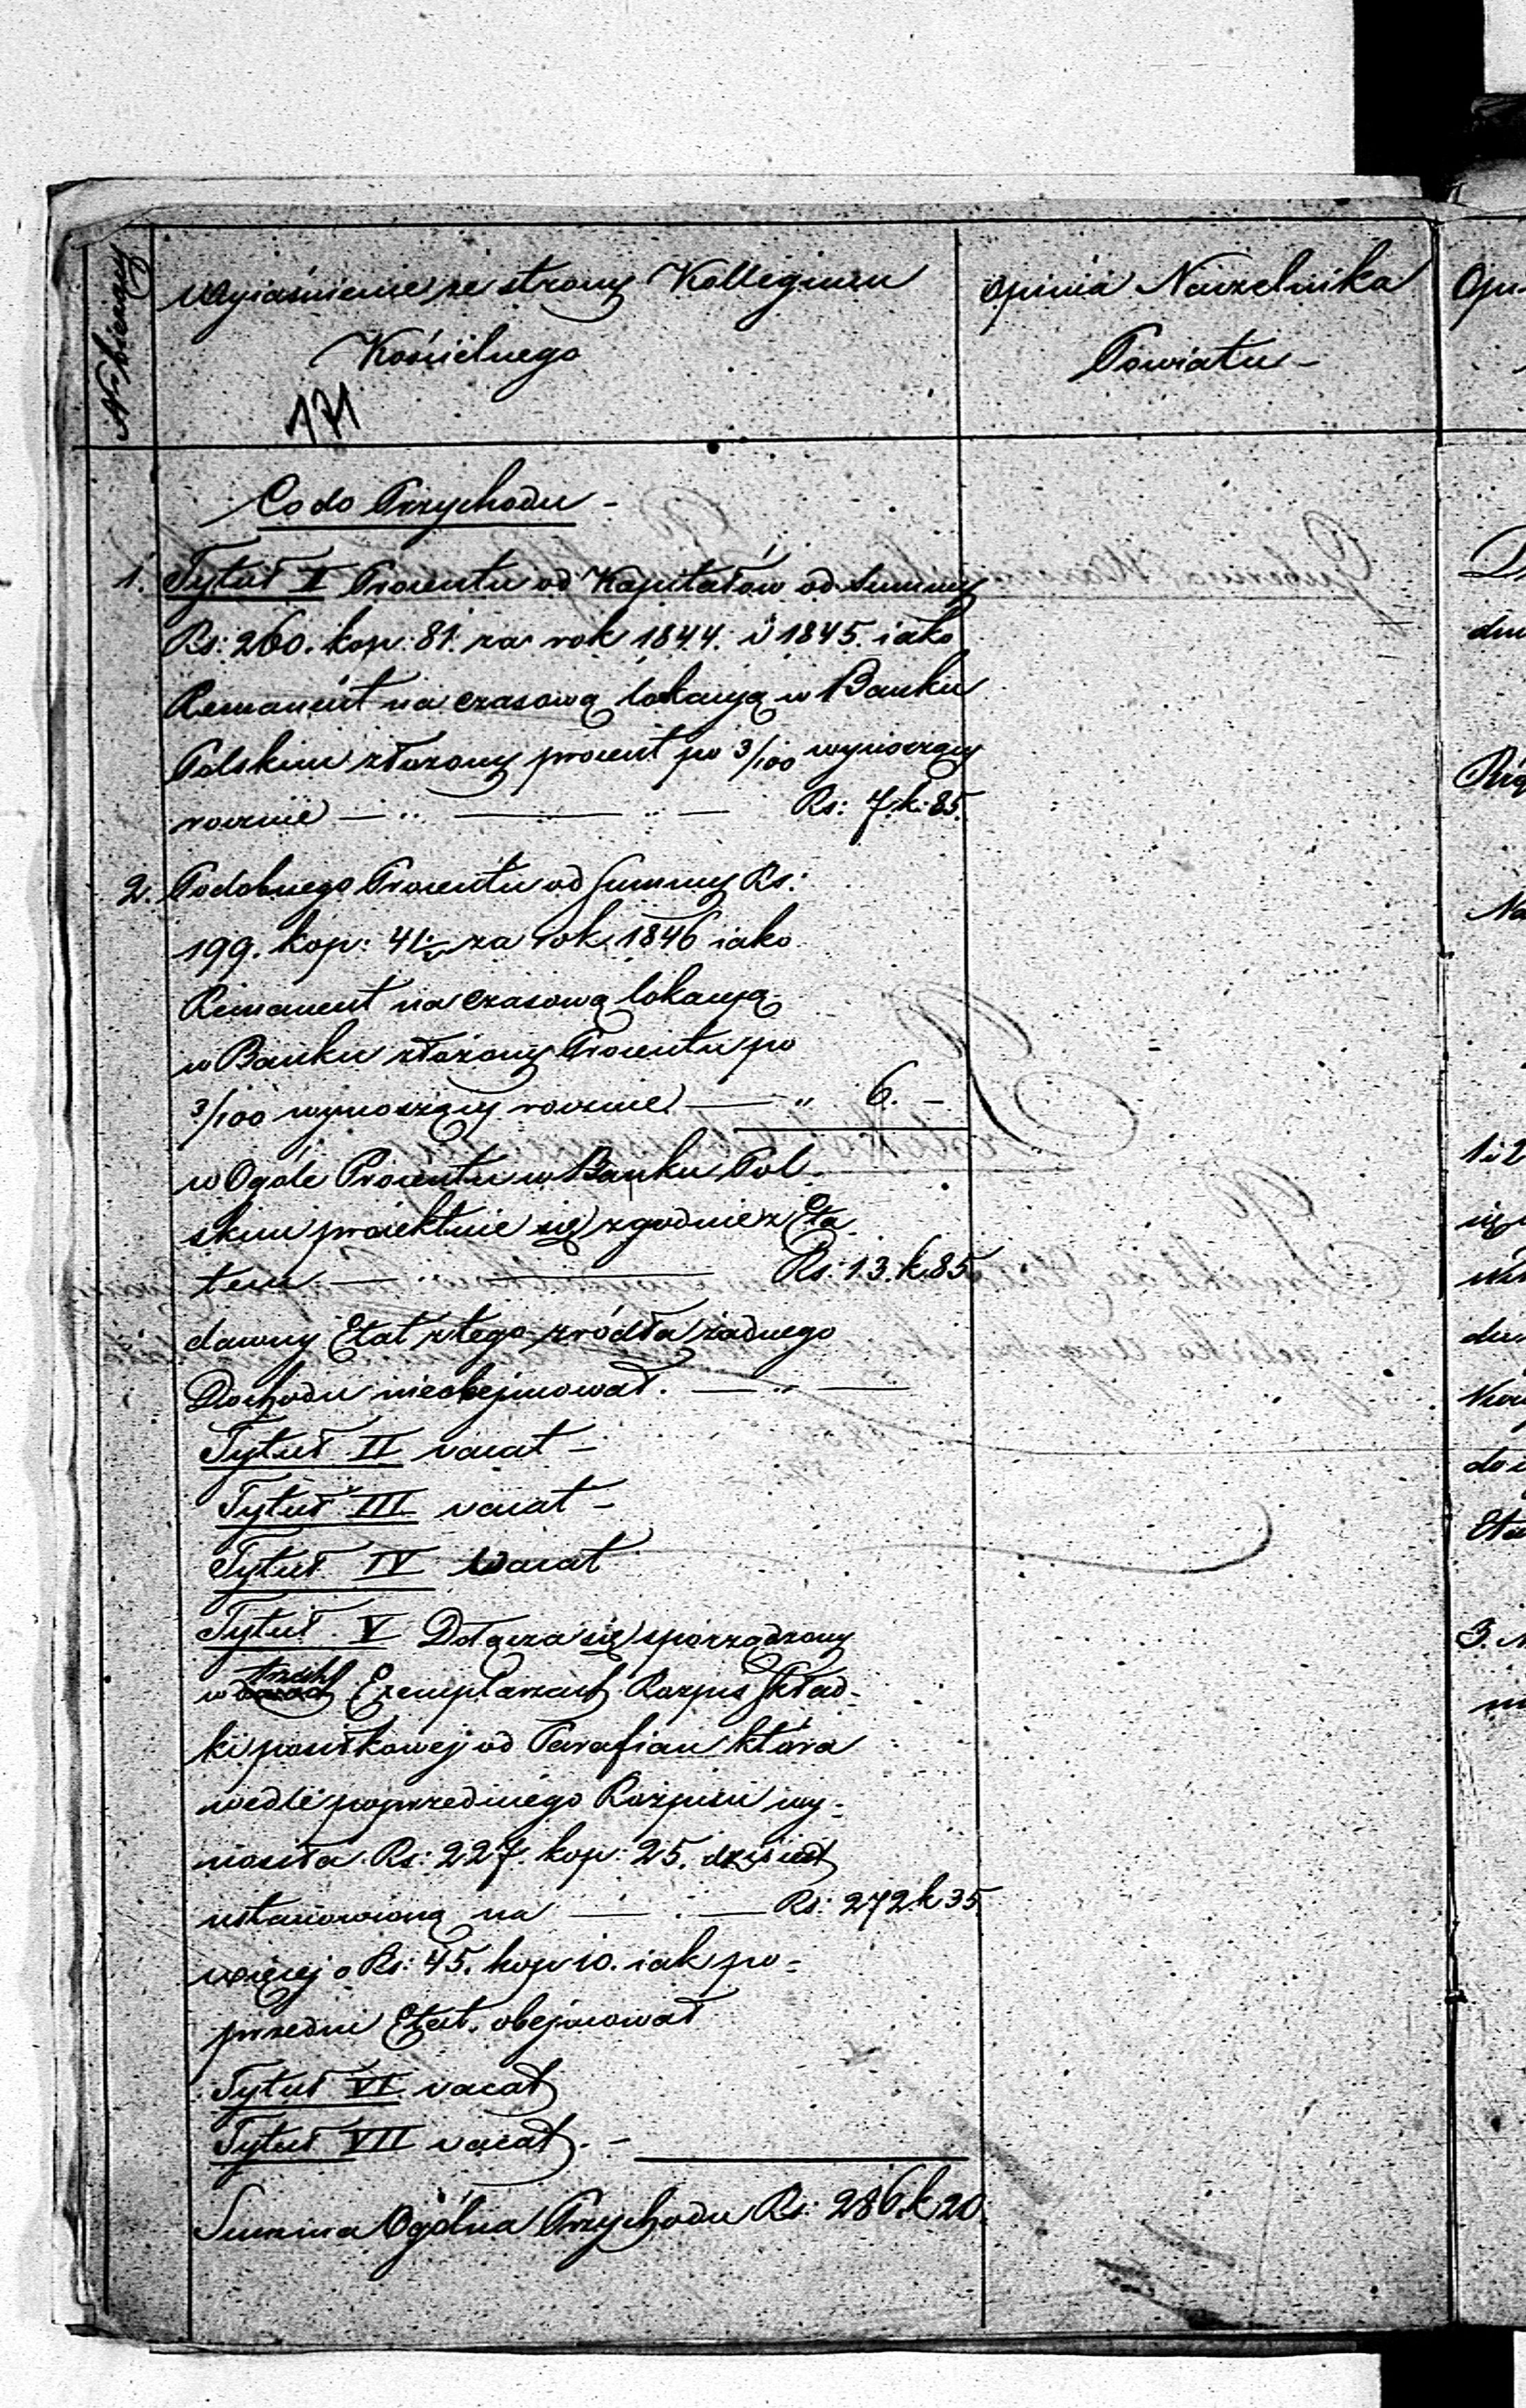 Nr bieżący
Wyiaśnienie ze strony Kollegium
Kościelnego
opinia Naczelnika
Powiatu -
171
Co do Przychodu -
1. Tytuł II Procentu od Kapitałów od Summy
Rs: 260. kop: 81. za rok 1844. i 1845. iako
Remanent na czasową lokacyą w Banku
Polskim złożony procent po 3/100 wynoszący
rocznie — " — " — Rs: 7. k: 85.
2. Podobnego Procentu od Summy Rs:
199. kop: 41. za rok 1846 iako
Remanent na czasową lokacyą
w Banku złożony Procentu po
3/100 wynoszący rocznie — " 6. -
w Ogóle Procentu w Banku Pol
skim proiektuie się zgodnie z Eta
tem — " — Rs: 13. k 85
dawny Etat z tego zródła żadnego
Dochodu nieobejmował. — " —
Tytuł II vacat -
Tytuł III vacat -
Tytuł IV Wacat
Tytuł V Dołącza się sporządzony
w trzech Exemplarzach Rozpis Skład-
ki posiłkowej od Parafian która
wedle poprzedniego Rozpisu wy-
nosiła Rs: 227. kop: 25. dziś iest
ustanowioną na — . — Rs: 272 k 35
więcej o Rs: 45. kop 10. iak po-
przedni Etat obejmował
Tytuł VI vacat
Tytuł VII vacat. -
Summa Ogólna Przychodu Rs: 286. k 20.